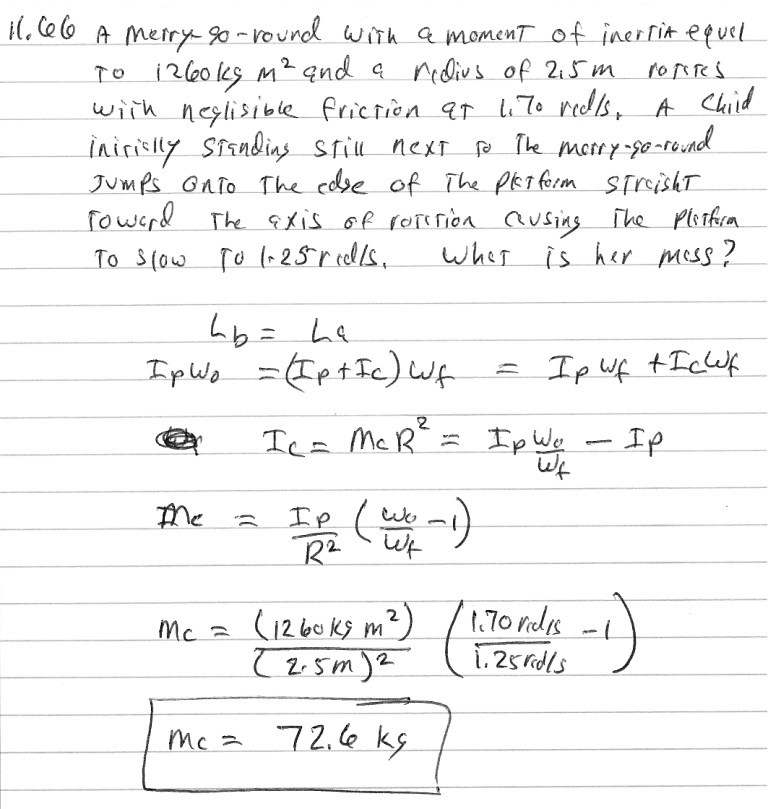 11.66 A merry-go-round with a moment of inertia equal
to 1260 kg m² and a radius of 2.5 m rotates
with negligible friction at 1.70 rad/s. A child
initially standing still next to the merry-go-round
jumps onto the edge of the platform straight
toward the axis of rotation causing the platform
to slow to 1.25 rad/s. What is her mass?
Lb = La
Ipω₀ = (Ip + Ic) ωf = Ip ωf + Ic ωf
Ic = McR² = Ip ω₀/ωf − Ip
Mc = Ip/R² (ω₀/ωf − 1)
Mc = (1260 kg m²)/(2.5m)² (1.70 rad/s/1.25 rad/s − 1)
Mc = 72.6 kg